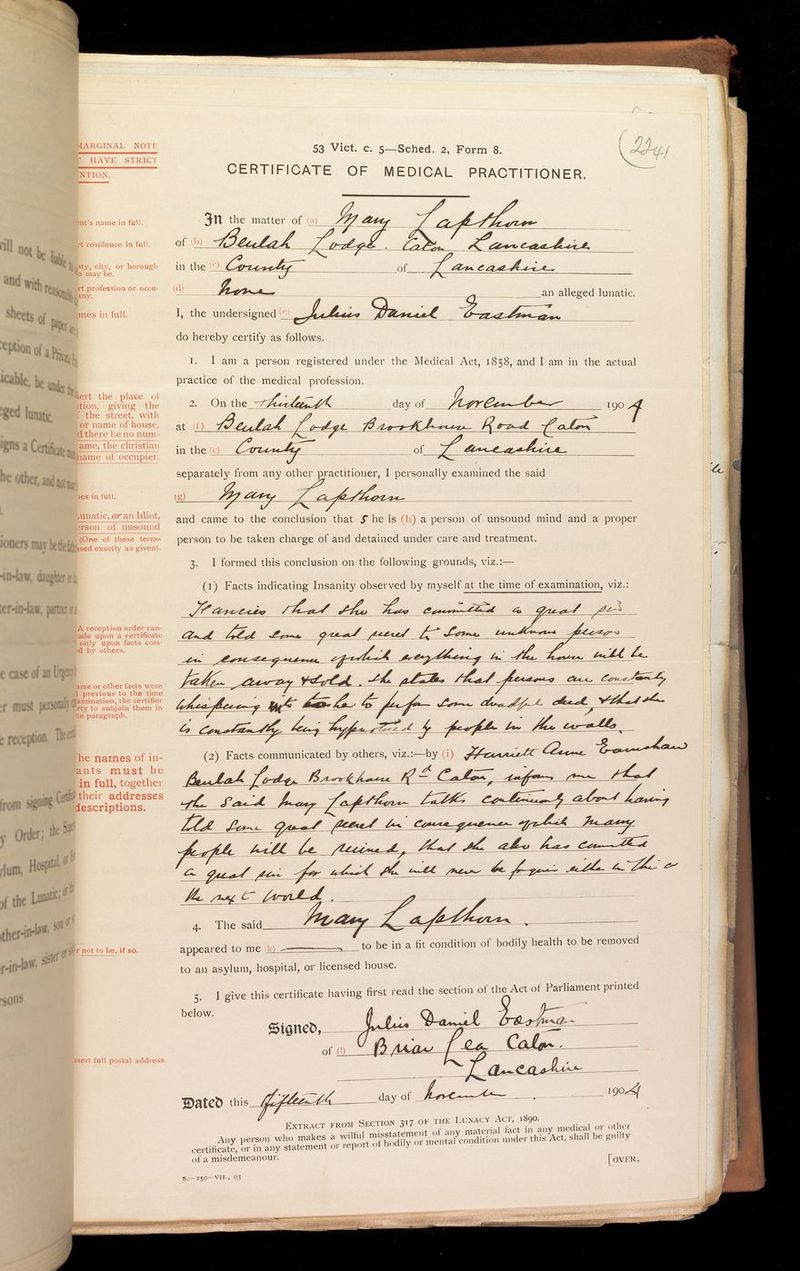 53 Vict. c. 5—Sched. 2, Form 8.
CERTIFICATE OF MEDICAL PRACTITIONER.
In the matter of (a) Mary Lapthorn
of (b) Beulah Lodge. Caton Lancashire
in the (c) County of Lancashire
(d) None an alleged lunatic.
I, the undersigned (e) Julius Daniel Eastman
do hereby certify as follows.
1. I am a person registered under the Medical Act, 1858, and I am in the actual
practice of the medical profession.
2. On the Thirteenth day of November 1904
at (f) Beulah Lodge Brookhouse Road Caton
in the (c) County of Lancashire
separately from any other practitioner, I personally examined the said
(g) Mary Lapthorn
and came to the conclusion that She is (h) a person of unsound mind and a proper
person to be taken charge of and detained under care and treatment.
3. I formed this conclusion on the following grounds, viz.:—
(1) Facts indicating Insanity observed by myself at the time of examination, viz.:
Fancies that she has committed a great sin
and told some great secret to some unknown person
in consequence of which everything in the house will be
taken away & sold. She states that persons are constantly
whispering to her to perform some dreadful deed, & that she
is constantly being hypnotised by people in the walls.
(2) Facts communicated by others, viz.:—by (i) Harriett Anne
Beulah Lodge Brookhouse Rd Caton, informs me that
the said Mary Lapthorn talks continuously about having
told some great secret in consequence of which many
people will be ruined, that she also has committed
a great sin for which she will never be forgiven either in this or
the next world.
4. The said Mary Lapthorn.
appeared to me (k) to be in a fit condition of bodily health to be removed
to an asylum, hospital, or licensed house.
5. I give this certificate having first read the section of the Act of Parliament printed
below.
Signed, Julius Daniel Eastman
of (l) Briar Lea Caton.
Lancashire
Dated this fifteenth day of November 1904
EXTRACT FROM SECTION 317 OF THE LUNACY ACT, 1890.
Any person who makes a wilful misstatement of any material fact in any medical or other
certificate, or in any statement or report of bodily or mental condition under this Act, shall be guilty
of a misdemeanour.
[OVER.
S.—250—VII., 03
MARGINAL NOTE
HAVE STRICT
NTION.
nt's name in full.
rt residence in full.
nty, city, or borough
may be.
rt profession or occu-
any.
mes in full.
ert the place of
tion, giving the
the street, with
or name of house,
d there be no num-
ame, the christian
name of occupier.
es in full.
unatic, or an Idiot,
erson of unsound
(One of these terms
sed exactly as given).
A reception order can-
ade upon a certificate
only upon facts com-
d by others.
ame or other facts were
previous to the time
amination, the certifier
rty to subjoin them in
te paragraph.
he names of in-
ants must be
in full, together
their addresses
descriptions.
r not to be, if so.
nsert full postal address.
will not be liable
and with reasonable
sheets of paper
eption of a Private
icable, be under
ged lunatic.
signs a Certificate
he other, and not
ioners may be the
-in-law, daughter
er-in-law, partner
e case of an Urgency
r must personally
e reception. The
from signing Certif
y Order; the
lum, Hospital,
of the Lunatic;
ther-in-law, son
r-in-law, sister
sons